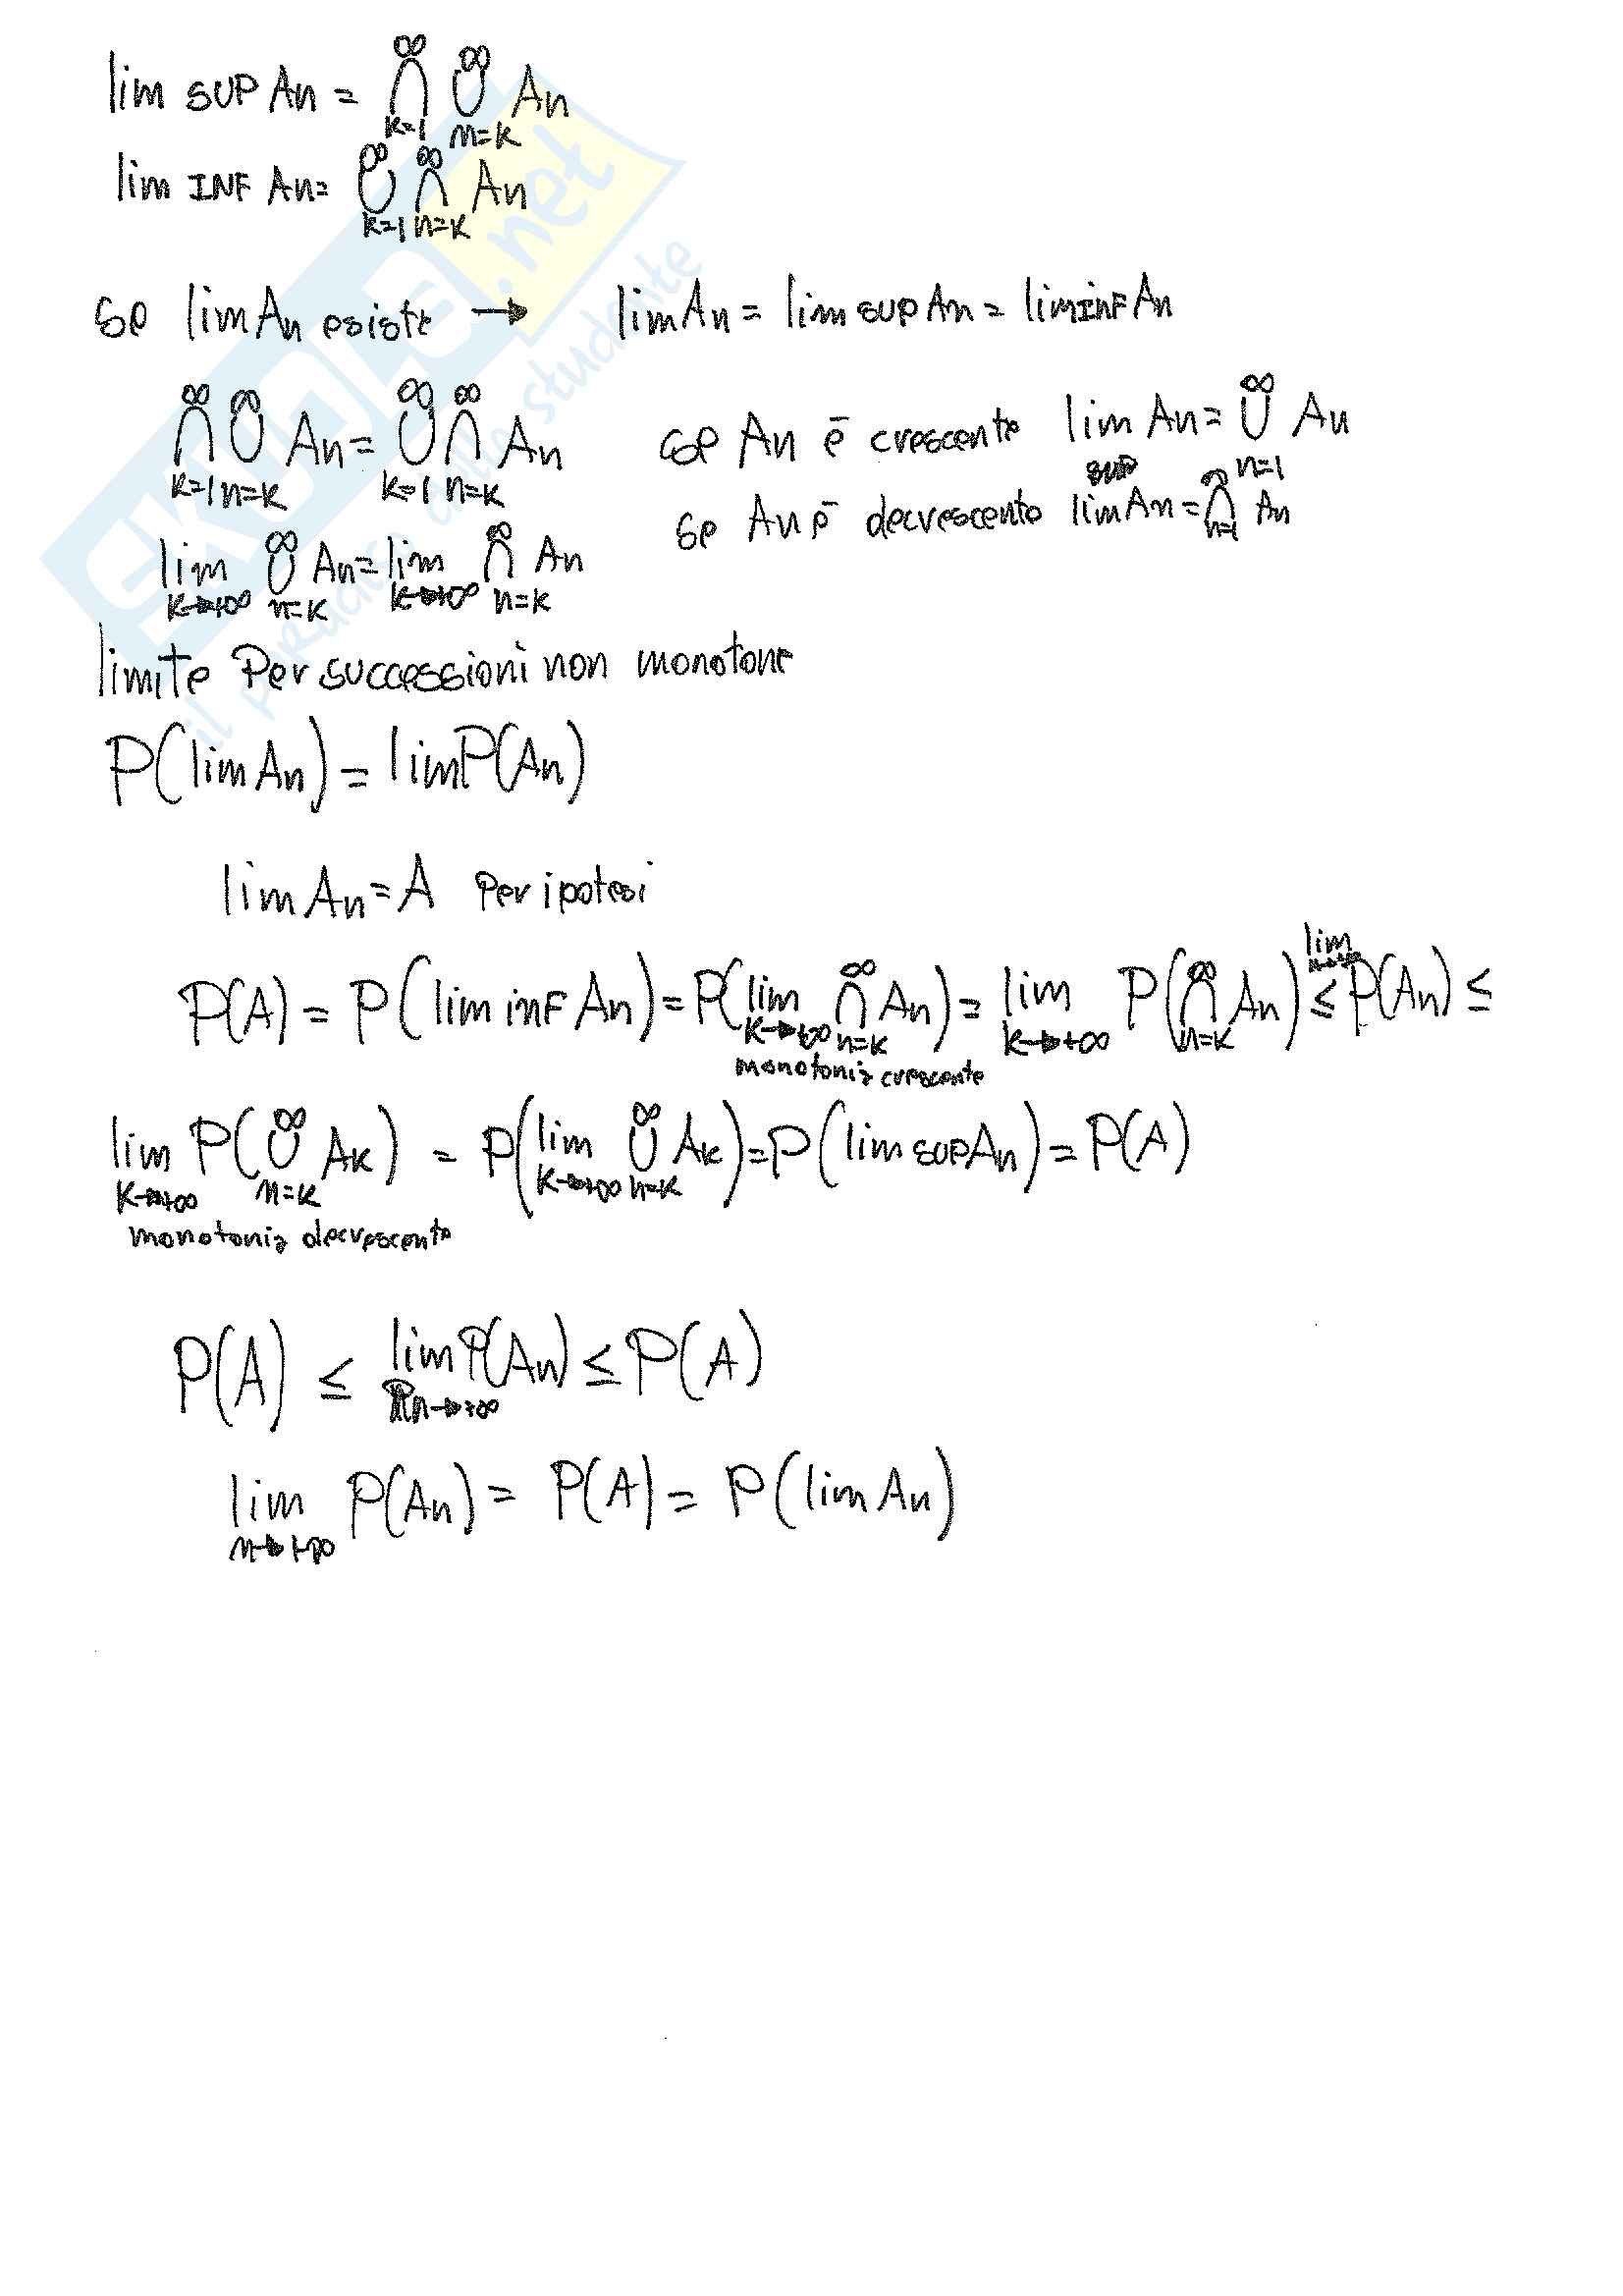 lim SUP An = ∞⋂k=1 ∞⋃n=k An
lim INF An= ∞⋃k=1 ∞⋂n=k An
Se lim An esiste → lim An = lim sup An = lim INF An
∞⋂k=1 ∞⋃n=k An = ∞⋃k=1 ∞⋂n=k An
se An è crescente lim An = ∞⋃n=1 An
se An è decrescente lim An = ∞⋂n=1 An
lim k→+∞ ∞⋃n=k An = lim k→+∞ ∞⋂n=k An
limite Per successioni non monotone
P(lim An) = lim P(An)
lim An = A Per ipotesi
P(A) = P(lim inf An) = P(lim k→+∞ ∞⋂n=k An) = lim k→+∞ P(∞⋂n=k An) ≤ lim P(An) ≤
monotonia crescente
lim k→+∞ P(∞⋃n=k Ak) = P(lim k→+∞ ∞⋃n=k Ak) = P(lim sup An) = P(A)
monotonia decrescente
P(A) ≤ lim n→+∞ P(An) ≤ P(A)
lim n→+∞ P(An) = P(A) = P(lim An)
SKUOLA.net
il paradiso dello studente